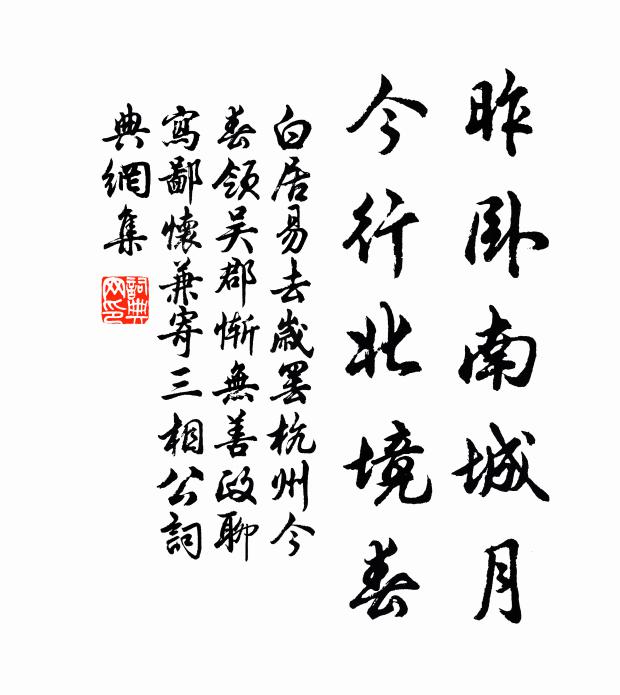 昨卧南城月
今行北境春
白居易去歲罷杭州今
春領吴郡慚無善政聊
寫鄙懷兼寄三相公詞
典網集
詞典
网印